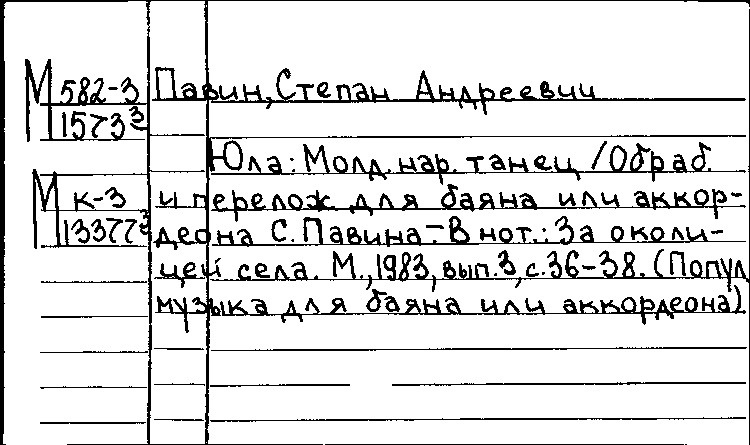 М 582-3 Павин, Степан Андреевич
1573³
Юла: Молд. нар. танец /Обраб.
М к-3 и перелож для баяна или аккор-
13377³ деона С. Павина.- В нот.: За околи-
цей села. М., 1983, вып. 3, с. 36-38. (Попул.
музыка для баяна или аккордеона).